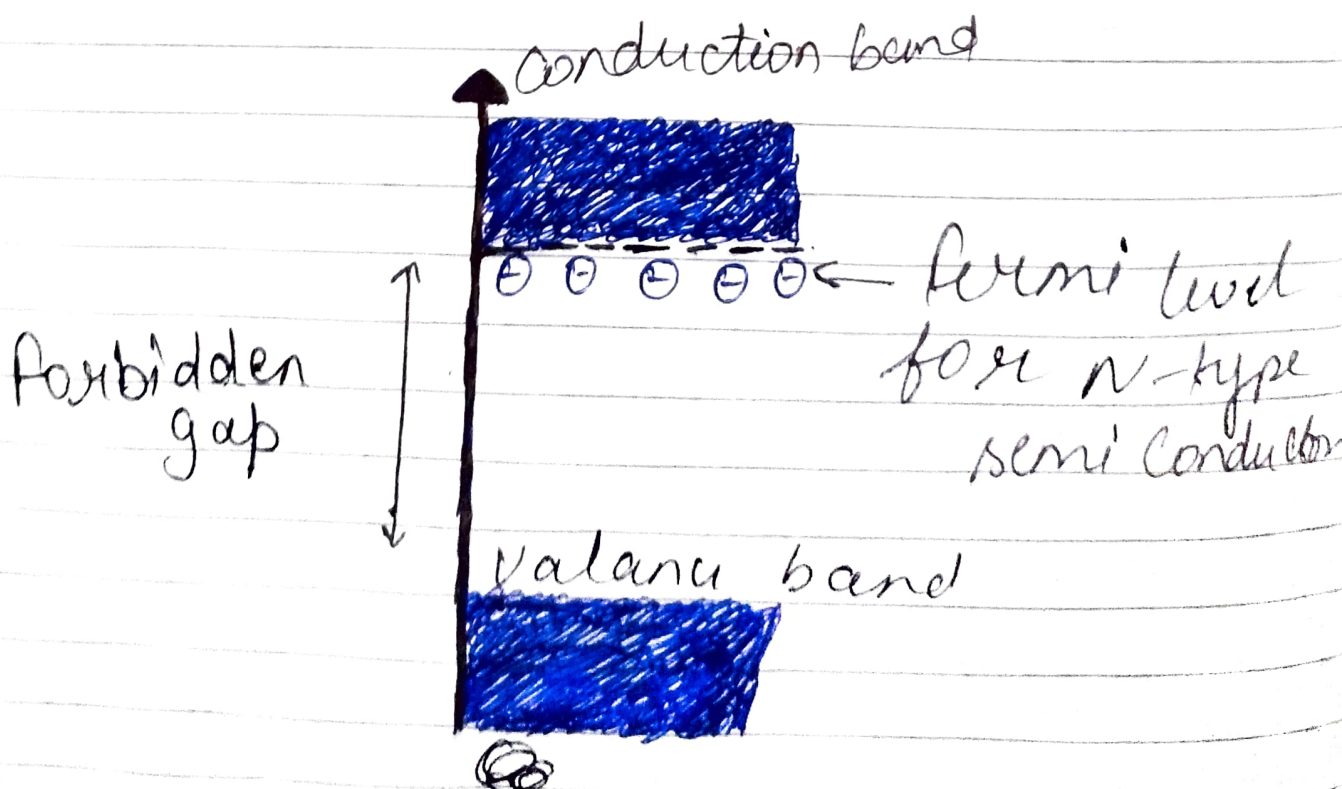 conduction band
fermi level
for N-type
semi conductor
forbidden
gap
valance band